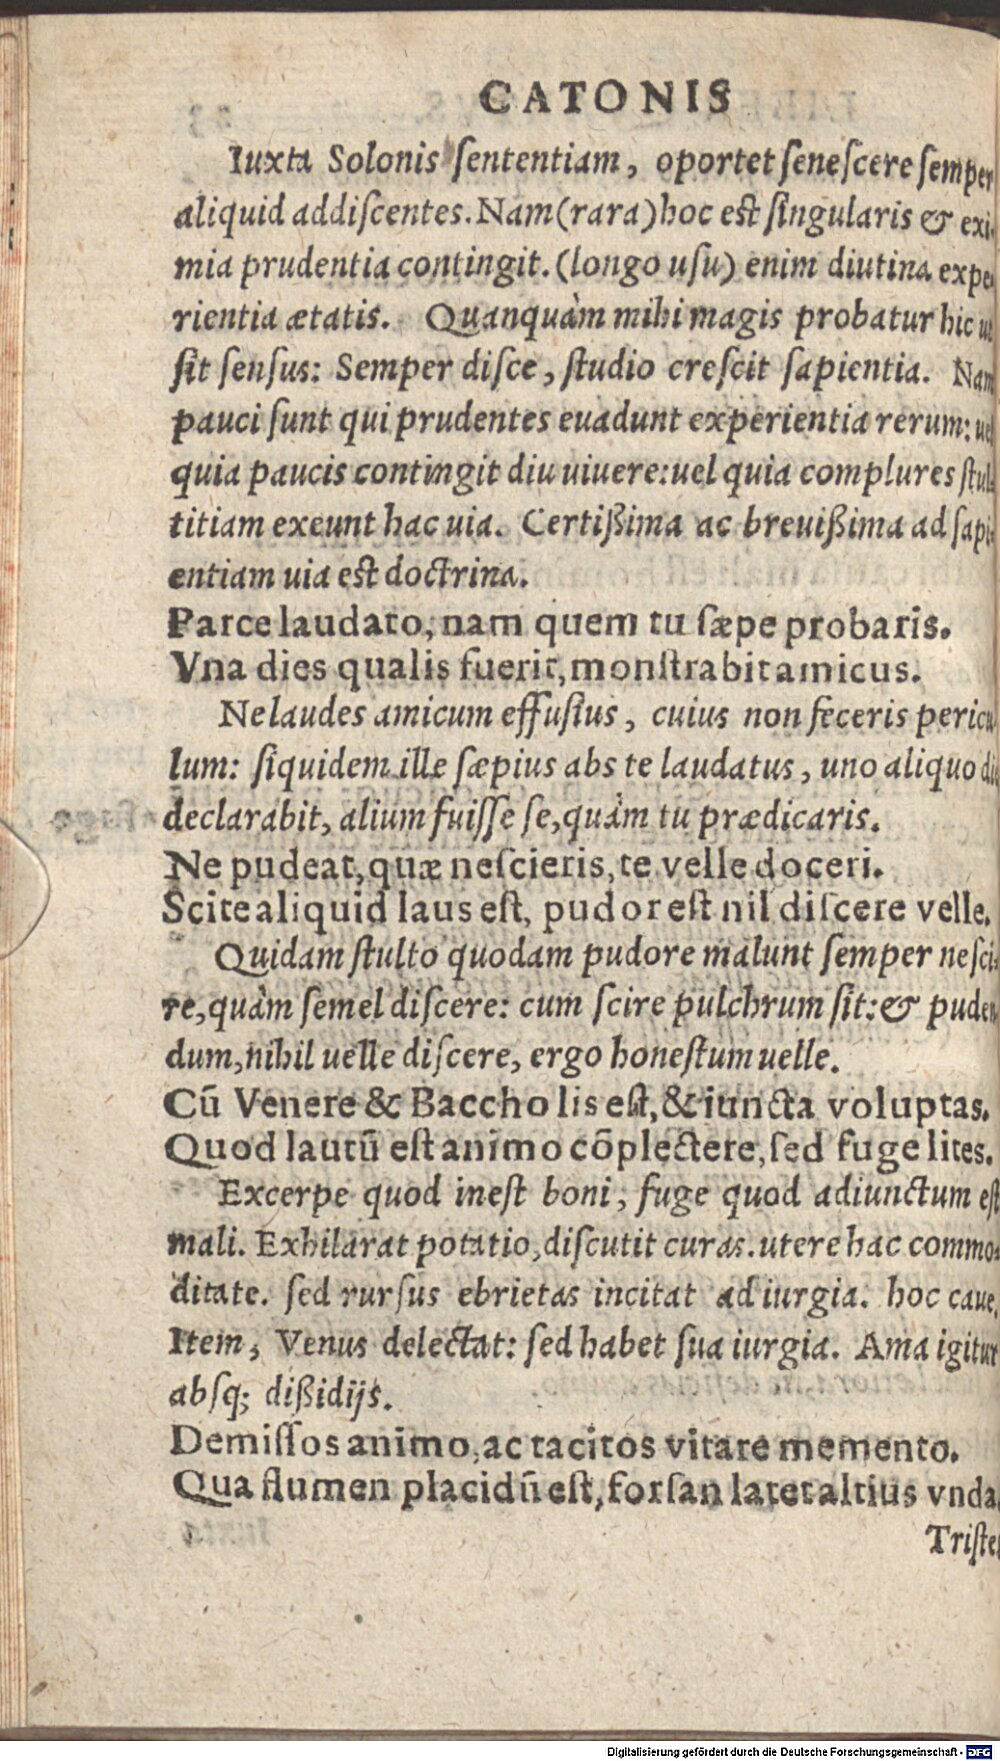 CATONIS
Iuxta Solonis ſententiam, oportet ſeneſcere ſemper
aliquid addiſcentes. Nam (rara) hoc eſt ſingularis & exi-
mia prudentia contingit. (longo uſu) enim diutina expe-
rientia ætatis. Quanquàm mihi magis probatur hic ut
ſit ſenſus: Semper diſce, ſtudio creſcit ſapientia. Nam
pauci ſunt qui prudentes euadunt experientia rerum: uel
quia paucis contingit diu uiuere: uel quia complures ſtul-
titiam exeunt hac uia. Certißima ac breuißima ad ſapi-
entiam uia eſt doctrina.
Parce laudato, nam quem tu ſæpe probaris.
Vna dies qualis fuerit, monſtrabit amicus.
Ne laudes amicum effuſius, cuius non feceris pericu-
lum: ſiquidem ille ſæpius abs te laudatus, uno aliquo die
declarabit, alium fuiſſe ſe, quàm tu prædicaris.
Ne pudeat, quæ neſcieris, te velle doceri.
Scite aliquid laus eſt, pudor eſt nil diſcere velle.
Quidam ſtulto quodam pudore malunt ſemper neſci-
re, quàm ſemel diſcere: cum ſcire pulchrum ſit: & puden-
dum, nihil uelle diſcere, ergo honeſtum uelle.
Cū Venere & Baccho lis eſt, & iuncta voluptas.
Quod lautū eſt animo cōplectere, ſed fuge lites.
Excerpe quod ineſt boni, fuge quod adiunctum eſt
mali. Exhilarat potatio, diſcutit curas. utere hac commo-
ditate. ſed rurſus ebrietas incitat ad iurgia. hoc caue,
Item, Venus delectat: ſed habet ſua iurgia. Ama igitur
abſq; dißidijs.
Demiſſos animo, ac tacitos vitare memento.
Qua flumen placidū eſt, forſan latet altius vnda.
Triſte
Digitalisierung gefördert durch die Deutsche Forschungsgemeinschaft - DFG